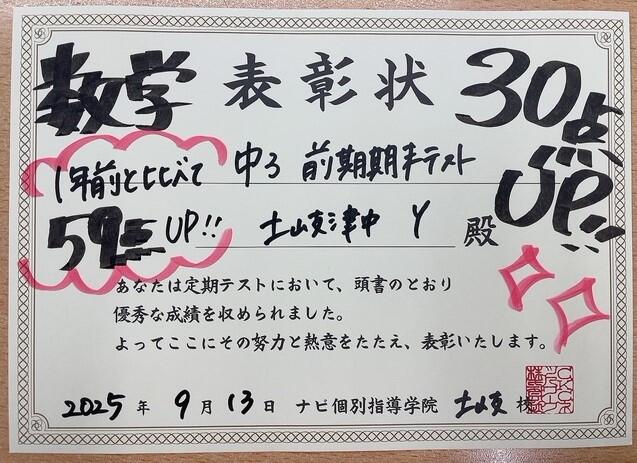 数学 表彰状 30点UP!!
1年前と比べて
59点UP!!
中3 前期期末テスト
土岐津中 Y 殿
あなたは定期テストにおいて、頭書のとおり
優秀な成績を収められました。
よってここにその努力と熱意をたたえ、表彰いたします。
2025年 9月13日 ナビ個別指導学院 土岐校